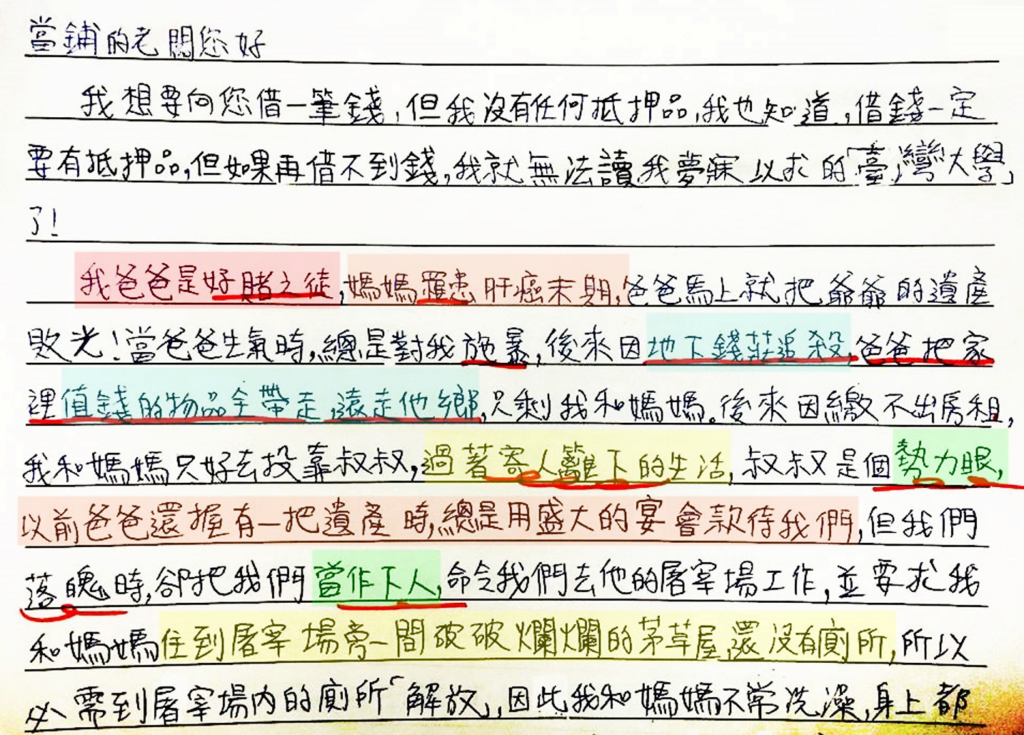 當鋪的老闆您好
我想要向您借一筆錢，但我沒有任何抵押品，我也知道，借錢一定
要有抵押品，但如果再借不到錢，我就無法讀我夢寐以求的「臺灣大學」
了！
我爸爸是好賭之徒，媽媽罹患肝癌末期，爸爸馬上就把爺爺的遺產
敗光！當爸爸生氣時，總是對我施暴，後來因地下錢莊追殺，爸爸把家
裡值錢的物品全帶走，遠走他鄉，只剩我和媽媽。後來因繳不出房租，
我和媽媽只好去投靠叔叔，過著寄人籬下的生活，叔叔是個勢力眼，
以前爸爸還握有一把遺產時，總是用盛大的宴會款待我們，但我們
落魄時，卻把我們當作下人，命令我們去他的屠宰場工作，並要求我
和媽媽住到屠宰場旁一間破破爛爛的茅草屋，還沒有廁所，所以
必需到屠宰場內的廁所「解放，因此我和媽媽不常洗澡，身上都